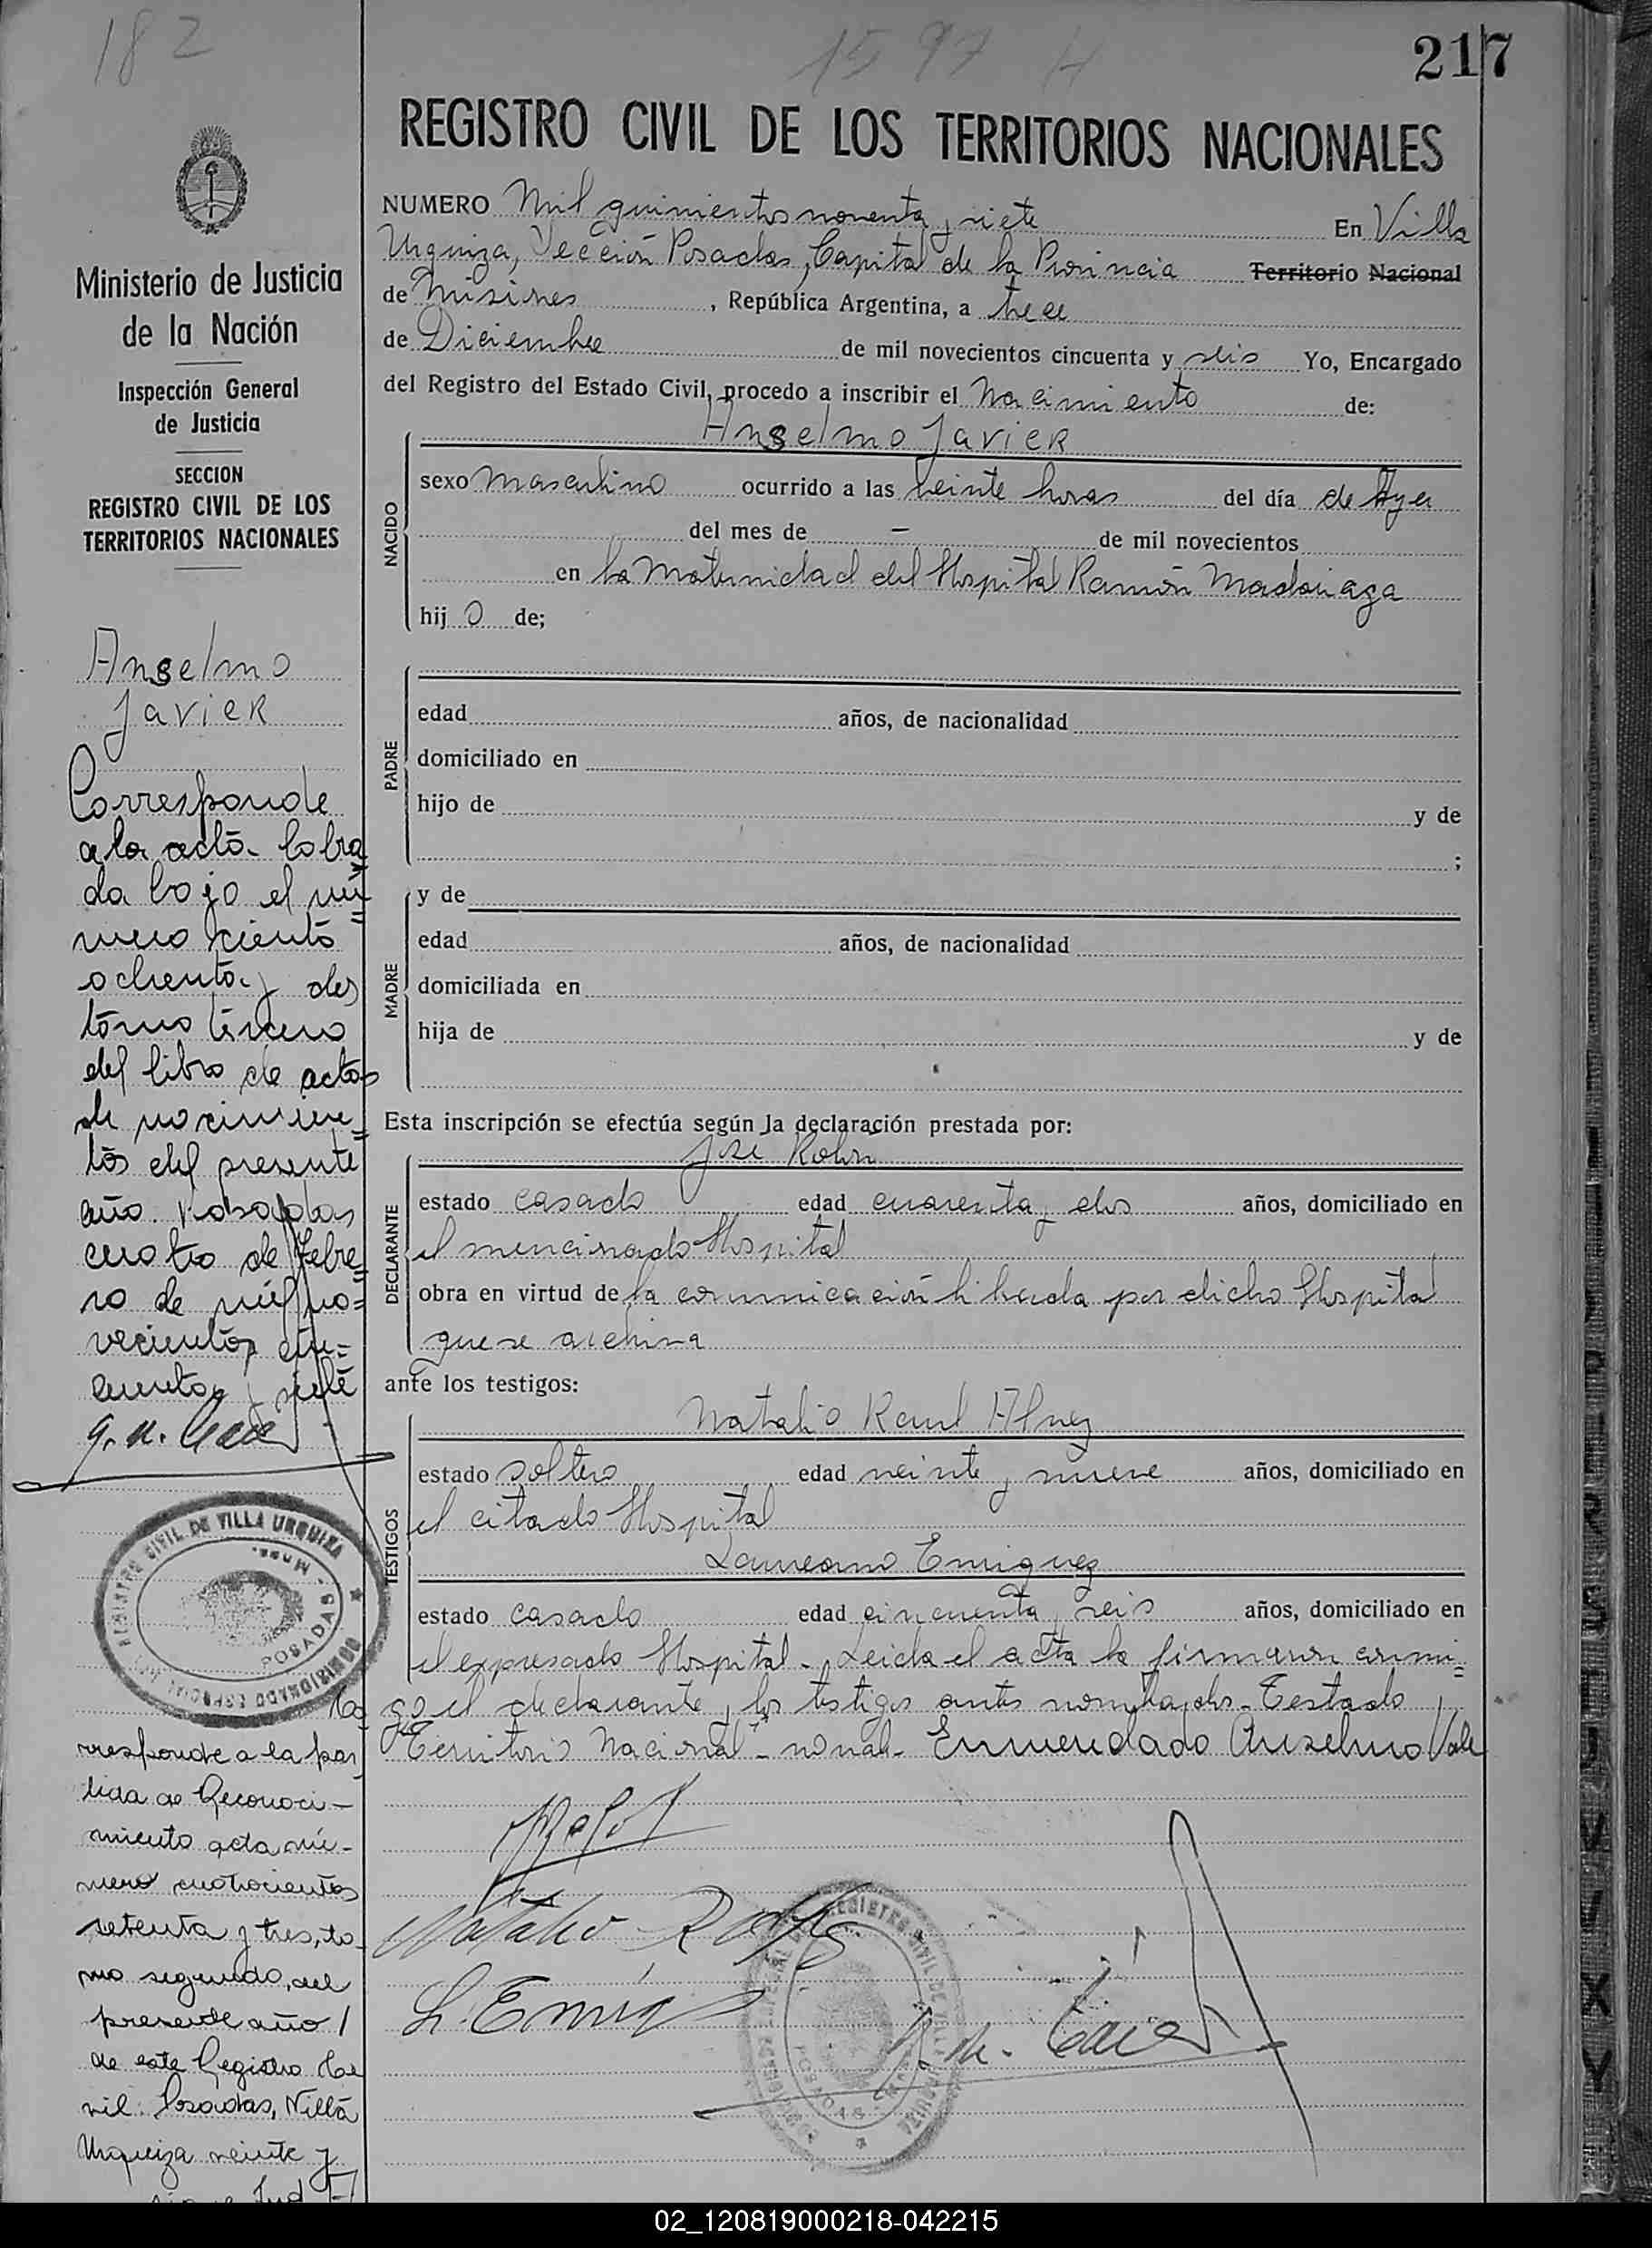 182
1597 H
217
REGISTRO CIVIL DE LOS TERRITORIOS NACIONALES
Ministerio de Justicia
de la Nación
Inspección General
de Justicia
SECCION
REGISTRO CIVIL DE LOS
TERRITORIOS NACIONALES
Anselmo
Javier
Corresponde
a la acta labra
da bajo el nú=
mero ciento
ochenta y dos
tomo tercero
del libro de actas
de nacimien=
tos del presente
año. Posadas
cuatro de Febre=
ro de mil no=
vecientos cin=
cuenta y siete
REGISTRO CIVIL DE VILLA URQUIZA
POSADAS - Mnes.
COMISIONADO ESPECIAL
Co
rresponde a la par
tida de Reconoci-
miento acta nú-
mero cuatrocientos
setenta y tres, to-
mo segundo, del
presente año
de este Registro Ci
vil. Posadas, Villa
Urquiza veinte y
NUMERO Mil quinientos noventa y siete En Villa
Urquiza, Sección Posadas, Capital de la Provincia Territorio Nacional
de Misiones, República Argentina, a trece
de Diciembre de mil novecientos cincuenta y seis Yo, Encargado
del Registro del Estado Civil, procedo a inscribir el Nacimiento de:
Anselmo Javier
NACIDO
sexo masculino ocurrido a las veinte horas del día de Ayer
del mes de - de mil novecientos
en la Maternidad del Hospital Ramón Madariaga
hij o de;
PADRE
edad años, de nacionalidad
domiciliado en
hijo de y de
;
y de
MADRE
edad años, de nacionalidad
domiciliada en
hija de y de
Esta inscripción se efectúa según la declaración prestada por:
José Rolón
DECLARANTE
estado casado edad cuarenta y dos años, domiciliado en
el mencionado Hospital
obra en virtud de la comunicación librada por dicho Hospital
que se archiva
ante los testigos:
Natalio Raul
TESTIGOS
estado soltero edad veinte y nueve años, domiciliado en
el citado Hospital
Laureano Enriquez
estado casado edad cincuenta y seis años, domiciliado en
el expresado Hospital. Leida el acta la firmaron conmi=
go el declarante y los testigos antes nombrados. Testado
"Territorio Nacional" no vale. Enmendado Anselmo Vale
Natalio R
REGISTRO CIVIL DE VILLA URQUIZA
POSADAS
02_120819000218-042215